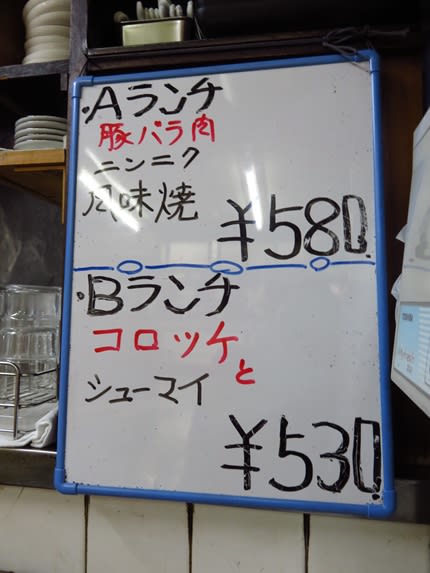 ・Aランチ
豚バラ肉
ニンニク
風味焼
¥580.
・Bランチ
コロッケと
シューマイ
¥530.